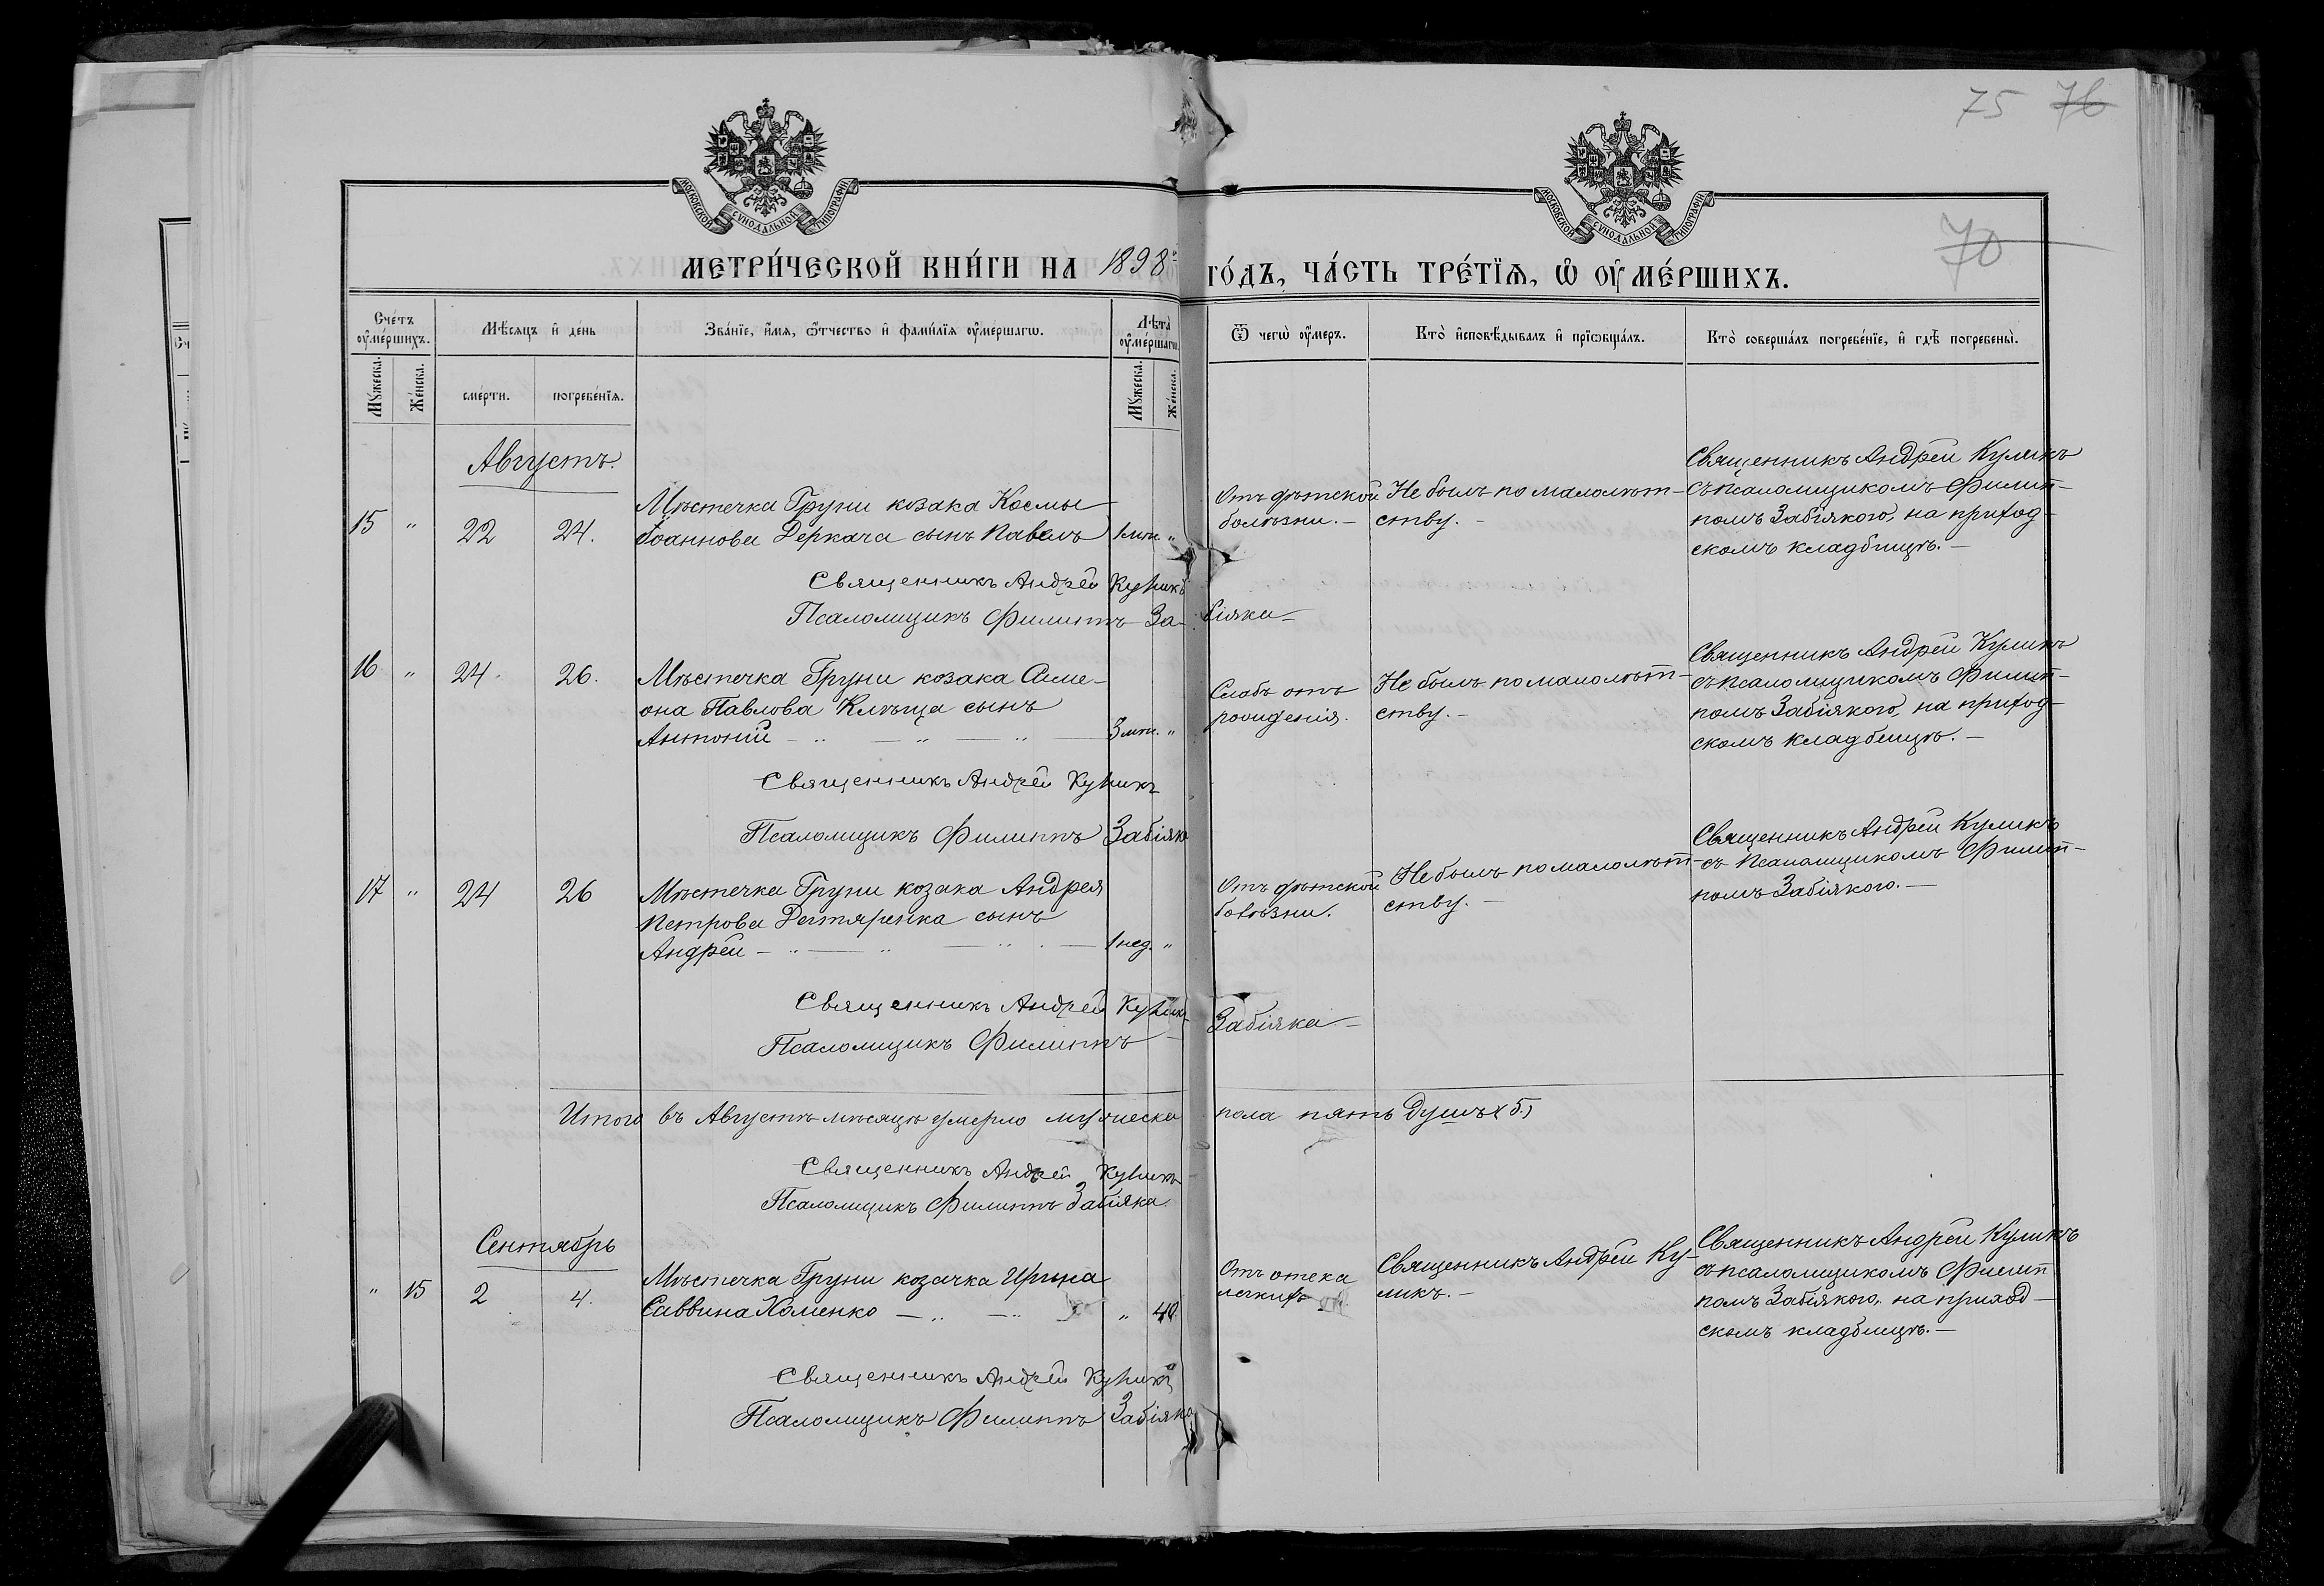 75 76
МОСКОВСКОЙ СѴНОДАЛЬНОЙ ТИПОГРАФІИ
МОСКОВСКОЙ СѴНОДАЛЬНОЙ ТИПОГРАФІИ
70
МЕТРИ́ЧЕСКОЙ КНИ́ГИ НА 1898й ГО́ДЪ, ЧА́СТЬ ТРЕ́ТЇѦ, Ѽ ОУ҆МЕ́РШИХЪ.
Сче́тъ оу҆ме́ршихъ.
Мꙋ́жеска.
Же́нска.
Мѣ́сяцъ и҆ де́нь
сме́рти.
погребе́нїѧ.
Зва́нїе, и҆́мѧ, ѻ҆́тчество и҆ фами́лїѧ оу҆ме́ршагѡ.
Лѣ́та оу҆ме́ршагѡ.
Мꙋ́жеска.
Же́нска.
Ѿ чегѡ̀ оу҆́мер.
Кто̀ и҆сповѣ́дывалъ и҆ прїѡбща́лъ.
Кто̀ соверша́лъ погребе́нїе, и҆ гдѣ̀ погребены̀.
Августъ.
15 " 22 24.
Мѣстечка Груни козака Космы
Іоаннова Деркача сынъ Павелъ 1 мѣс. "
Отъ дѣтской
болѣзни. –
Не былъ по малолѣт-
ству. –
Священникъ Андрей Куликъ
съ псаломщикомъ Филип-
помъ Забіякою, на приход-
скомъ кладбищѣ. –
Священникъ Андрей Куликъ
Псаломщикъ Филиппъ Забіяка
16 " 24. 26.
Мѣстечка Груни козака Симе-
она Павлова Клѣща сынъ
Антоній – " – " – " – 3 мѣс. "
Слабъ отъ
рожденія.
Не былъ по малолѣт-
ству. –
Священникъ Андрей Куликъ
съ псаломщикомъ Филип-
помъ Забіякою, на приход-
скомъ кладбищѣ. –
Священникъ Андрей Куликъ
Псаломщикъ Филиппъ Забіяка
17 " 24 26
Мѣстечка Груни козака Андрея
Петрова Дегтяренка сынъ
Андрей – " – " – " – 1 нед. "
Отъ дѣтской
болѣзни.
Не былъ по малолѣт-
ству. –
Священникъ Андрей Куликъ
съ псаломщикомъ Филип-
помъ Забіякою. –
Священникъ Андрей Куликъ
Псаломщикъ Филиппъ – Забіяка –
Итого въ Августѣ мѣсяцѣ умерло мужеска пола пять душъ (5.)
Священникъ Андрей Куликъ
Псаломщикъ Филиппъ Забіяка
Сентябрь
" 15 2 4.
Мѣстечка Груни козачка Ирина
Саввина Хоменко – " – " " 40.
Отъ отека
легкихъ
Священникъ Андрей Ку-
ликъ. –
Священникъ Андрей Куликъ
съ псаломщикомъ Филип
помъ Забіякою, на приход-
скомъ кладбищѣ. –
Священникъ Андрей Куликъ
Псаломщикъ Филиппъ Забіяка